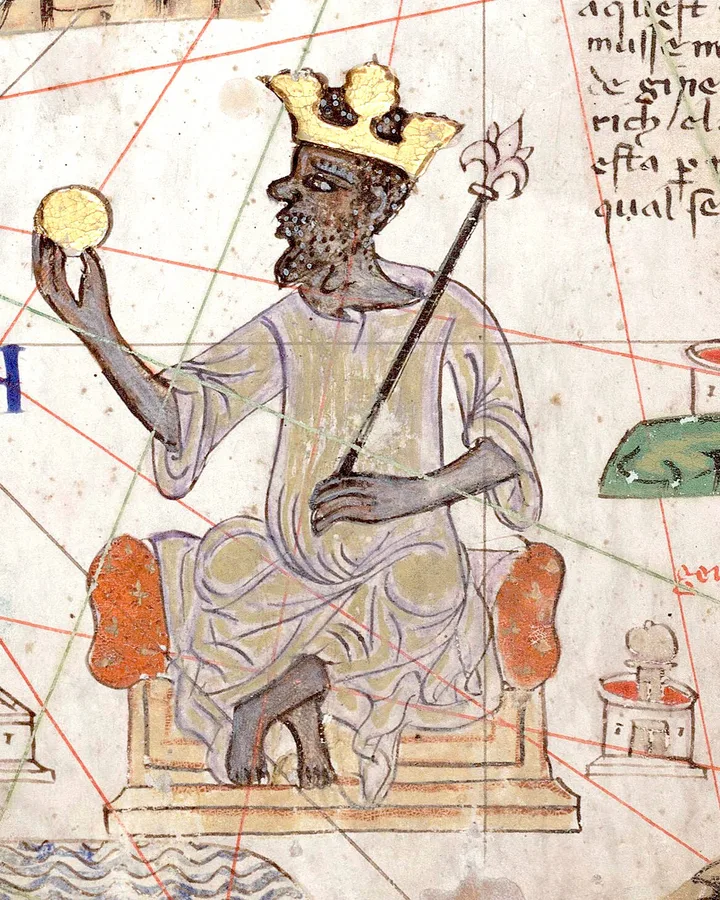 aquest
musse m
de gine
rich el
esta p
qual se
H